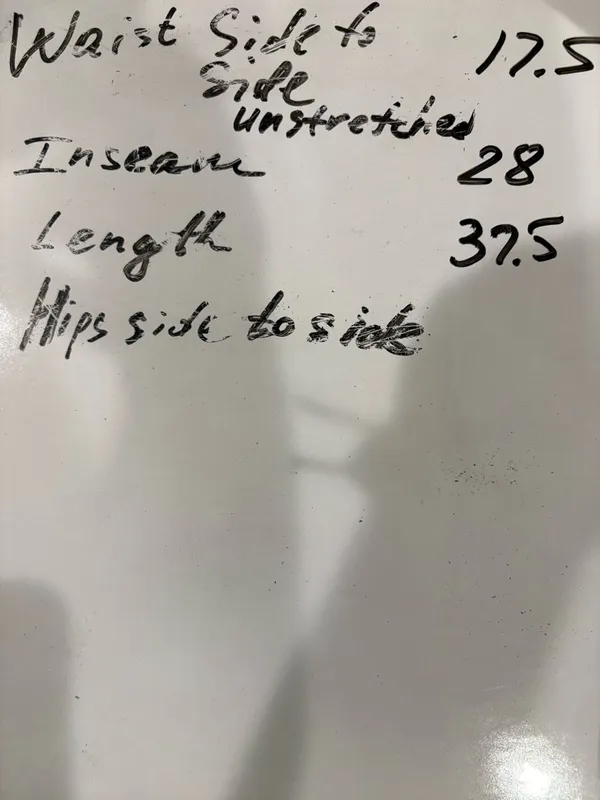 Waist Side to 17.5
Side
unstretched
Inseam 28
Length 37.5
Hips side to side